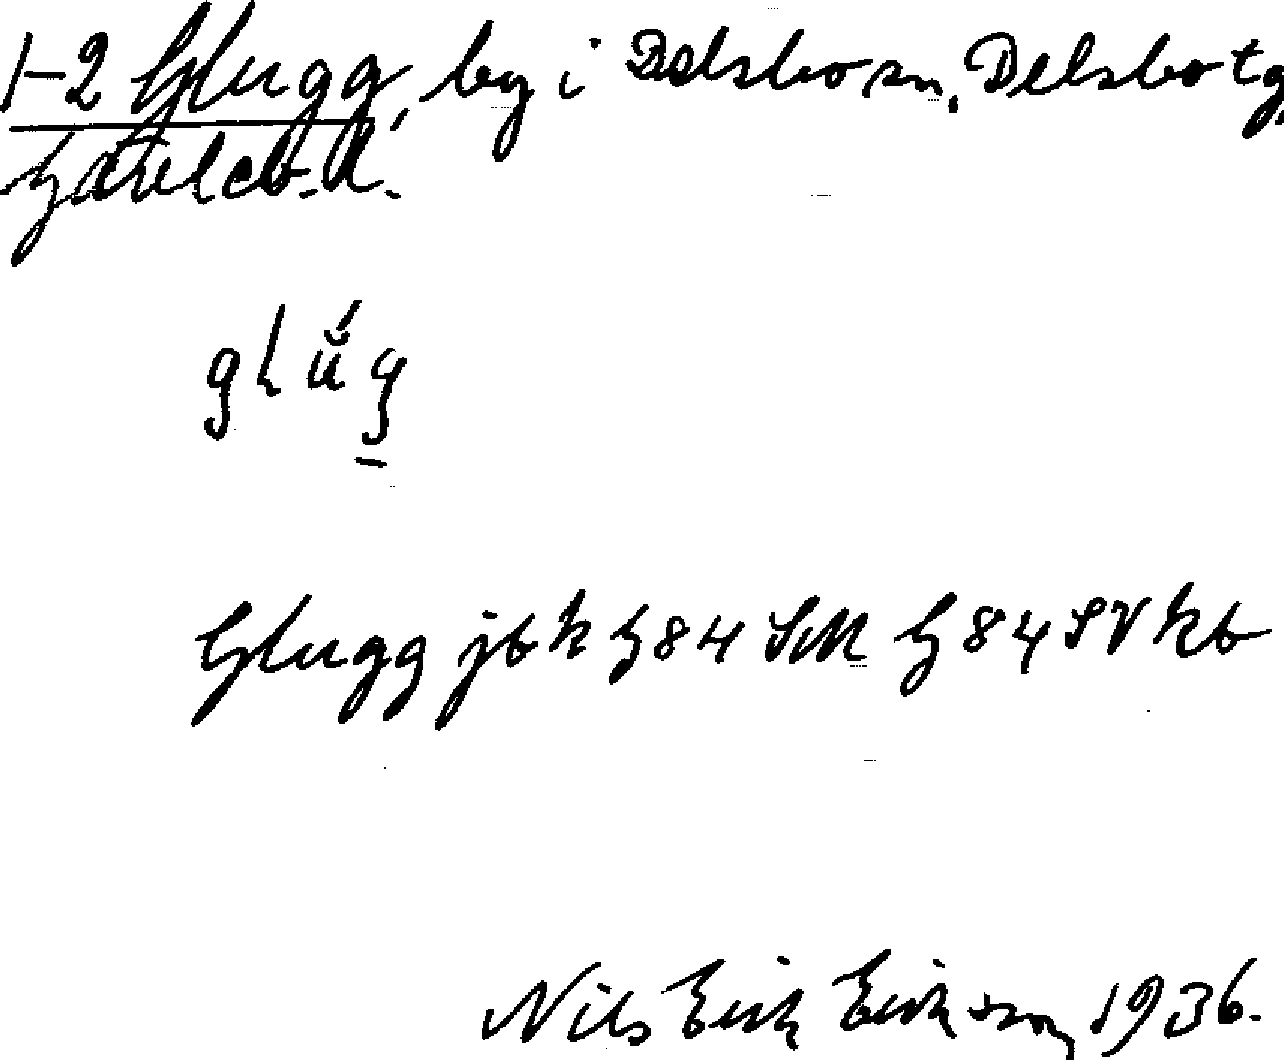 1-2 Glugg, by i Delsbo sn, Delsbo tg,
Gävleb. l.
glŭ́g
Glugg jbk G84 SM G84 SV kb
Nils Erik Eriksson 1936.